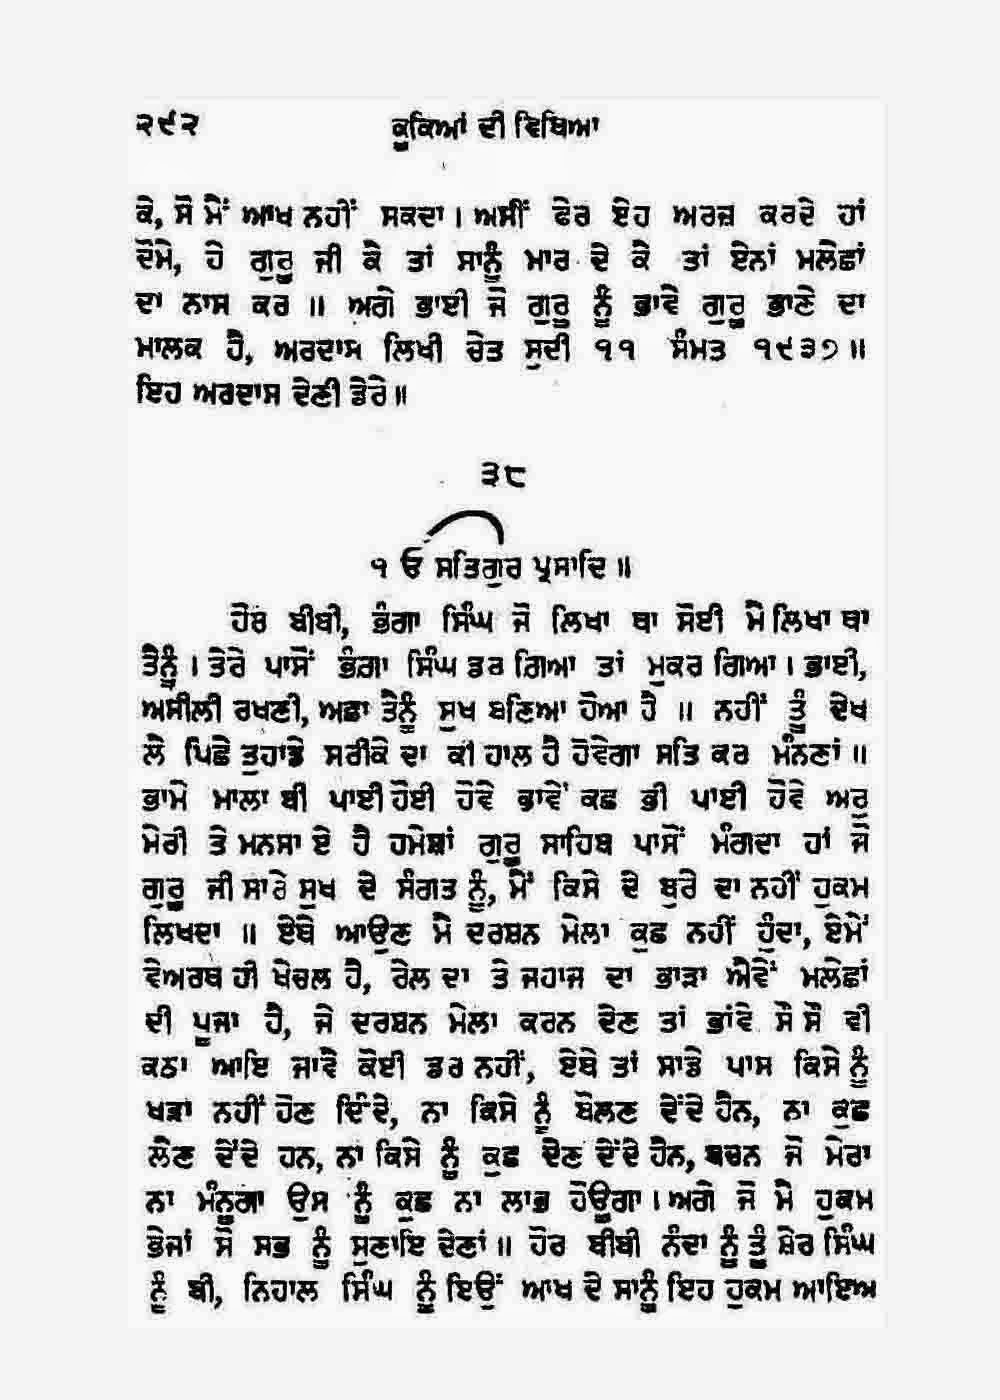 ੨੯੨ ਕੂਕਿਆਂ ਦੀ ਵਿਥਿਆ
ਕੇ, ਸੋ ਮੈਂ ਆਖ ਨਹੀਂ ਸਕਦਾ। ਅਸੀਂ ਫੇਰ ਏਹ ਅਰਜ਼ ਕਰਦੇ ਹਾਂ
ਦੋਮੇ, ਹੇ ਗੁਰੂ ਜੀ ਕੈ ਤਾਂ ਸਾਨੂੰ ਮਾਰ ਦੇ ਕੈ ਤਾਂ ਏਨਾਂ ਮਲੇਛਾਂ
ਦਾ ਨਾਸ ਕਰ ॥ ਅਗੇ ਭਾਈ ਜੋ ਗੁਰੂ ਨੂੰ ਭਾਵੇ ਗੁਰੂ ਭਾਣੇ ਦਾ
ਮਾਲਕ ਹੈ, ਅਰਦਾਸ ਲਿਖੀ ਚੇਤ ਸੁਦੀ ੧੧ ਸੰਮਤ ੧੯੩੭॥
ਇਹ ਅਰਦਾਸ ਦੇਣੀ ਡੇਰੇ॥
੩੮
੧ ਓ ਸਤਿਗੁਰ ਪ੍ਰਸਾਦਿ॥
ਹੋਰ ਬੀਬੀ, ਭੰਗਾ ਸਿੰਘ ਜੋ ਲਿਖਾ ਥਾ ਸੋਈ ਮੈ ਲਿਖਾ ਥਾ
ਤੈਨੂੰ। ਤੇਰੇ ਪਾਸੋਂ ਭੰਗਾ ਸਿੰਘ ਡਰ ਗਿਆ ਤਾਂ ਮੁਕਰ ਗਿਆ। ਭਾਈ,
ਅਸੀਲੀ ਰਖਣੀ, ਅਛਾ ਤੈਨੂੰ ਸੁਖ ਬਣਿਆ ਹੋਆ ਹੈ ॥ ਨਹੀਂ ਤੂੰ ਦੇਖ
ਲੈ ਪਿਛੈ ਤੁਹਾਡੇ ਸਰੀਕੇ ਦਾ ਕੀ ਹਾਲ ਹੈ ਹੋਵੇਗਾ ਸਤਿ ਕਰ ਮੰਨਣਾਂ॥
ਭਾਮੇ ਮਾਲਾ ਬੀ ਪਾਈ ਹੋਈ ਹੋਵੇ ਭਾਵੇਂ ਕਛ ਭੀ ਪਾਈ ਹੋਵੇ ਅਰੁ
ਮੇਰੀ ਤੇ ਮਨਸਾ ਏ ਹੈ ਹਮੇਸ਼ਾਂ ਗੁਰੂ ਸਾਹਿਬ ਪਾਸੋਂ ਮੰਗਦਾ ਹਾਂ ਜੋ
ਗੁਰੂ ਜੀ ਸਾਰੇ ਸੁਖ ਦੇ ਸੰਗਤ ਨੂੰ, ਮੈਂ ਕਿਸੇ ਦੇ ਬੁਰੇ ਦਾ ਨਹੀਂ ਹੁਕਮ
ਲਿਖਦਾ ॥ ਏਥੇ ਆਉਣ ਮੈ ਦਰਸ਼ਨ ਮੇਲਾ ਕੁਛ ਨਹੀਂ ਹੁੰਦਾ, ਏਮੇਂ
ਵੇਅਰਥ ਹੀ ਖੇਚਲ ਹੈ, ਰੇਲ ਦਾ ਤੇ ਜਹਾਜ ਦਾ ਭਾੜਾ ਐਵੇਂ ਮਲੇਛਾਂ
ਦੀ ਪੂਜਾ ਹੈ, ਜੇ ਦਰਸ਼ਨ ਮੇਲਾ ਕਰਨ ਦੇਣ ਤਾਂ ਭਾਂਵੇ ਸੌ ਸੌ ਵੀ
ਕਠਾ ਆਇ ਜਾਵੇ ਕੋਈ ਡਰ ਨਹੀਂ, ਏਥੇ ਤਾਂ ਸਾਡੇ ਪਾਸ ਕਿਸੇ ਨੂੰ
ਖੜਾ ਨਹੀਂ ਹੋਣ ਦਿੰਦੇ, ਨਾ ਕਿਸੇ ਨੂੰ ਬੋਲਣ ਦੇਂਦੇ ਹੈਨ, ਨਾ ਕੁਛ
ਲੈਣ ਦੇਂਦੇ ਹਨ, ਨਾ ਕਿਸੇ ਨੂੰ ਕੁਛ ਦੇਣ ਦੇਂਦੇ ਹੈਨ, ਬਚਨ ਜੋ ਮੇਰਾ
ਨਾ ਮੰਨੂਗਾ ਉਸ ਨੂੰ ਕੁਛ ਨਾ ਲਾਭ ਹੋਊਗਾ। ਅਗੇ ਜੋ ਮੈ ਹੁਕਮ
ਭੇਜਾਂ ਸੋ ਸਭ ਨੂੰ ਸੁਣਾਇ ਦੇਣਾਂ॥ ਹੋਰ ਬੀਬੀ ਨੰਦਾ ਨੂੰ ਤੂੰ ਸ਼ੇਰ ਸਿੰਘ
ਨੂੰ ਬੀ, ਨਿਹਾਲ ਸਿੰਘ ਨੂੰ ਇਉਂ ਆਖ ਦੇ ਸਾਨੂੰ ਇਹ ਹੁਕਮ ਆਇਅ